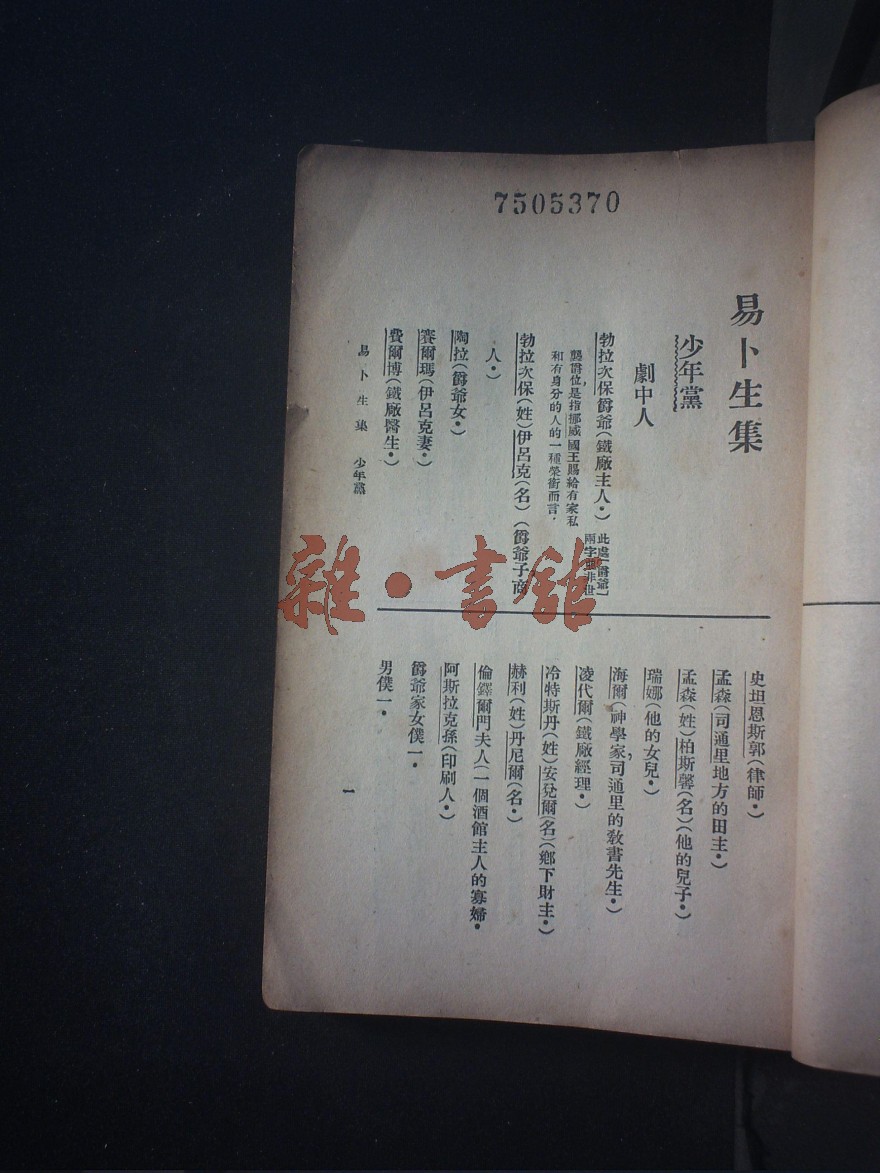 7505370
易卜生集
少年黨
劇中人
勃拉次保爵爺(鐵廠主人.)
此處「爵爺」
兩字並非世
襲爵位,是指挪威國王賜給有家私
和有身分的人的一種榮銜而言.
勃拉次保(姓)伊呂克(名)(爵爺子商
人.)
陶拉(爵爺女.)
賽爾瑪(伊呂克妻.)
費爾博(鐵廠醫生.)
史坦恩斯郭(律師.)
孟森(司通里地方的田主.)
孟森(姓)柏斯馨(名)(他的兒子.)
瑞娜(他的女兒.)
海爾(神學家,司通里的教書先生.)
凌代爾(鐵廠經理.)
冷特斯丹(姓)安兌爾(名)(鄉下財主.)
赫利(姓)丹尼爾(名.)
倫鐸爾門夫人(一個酒館主人的寡婦.
阿斯拉克孫(印刷人.)
爵爺家女僕一.
男僕一.
易卜生集 少年黨
一
雜·書館